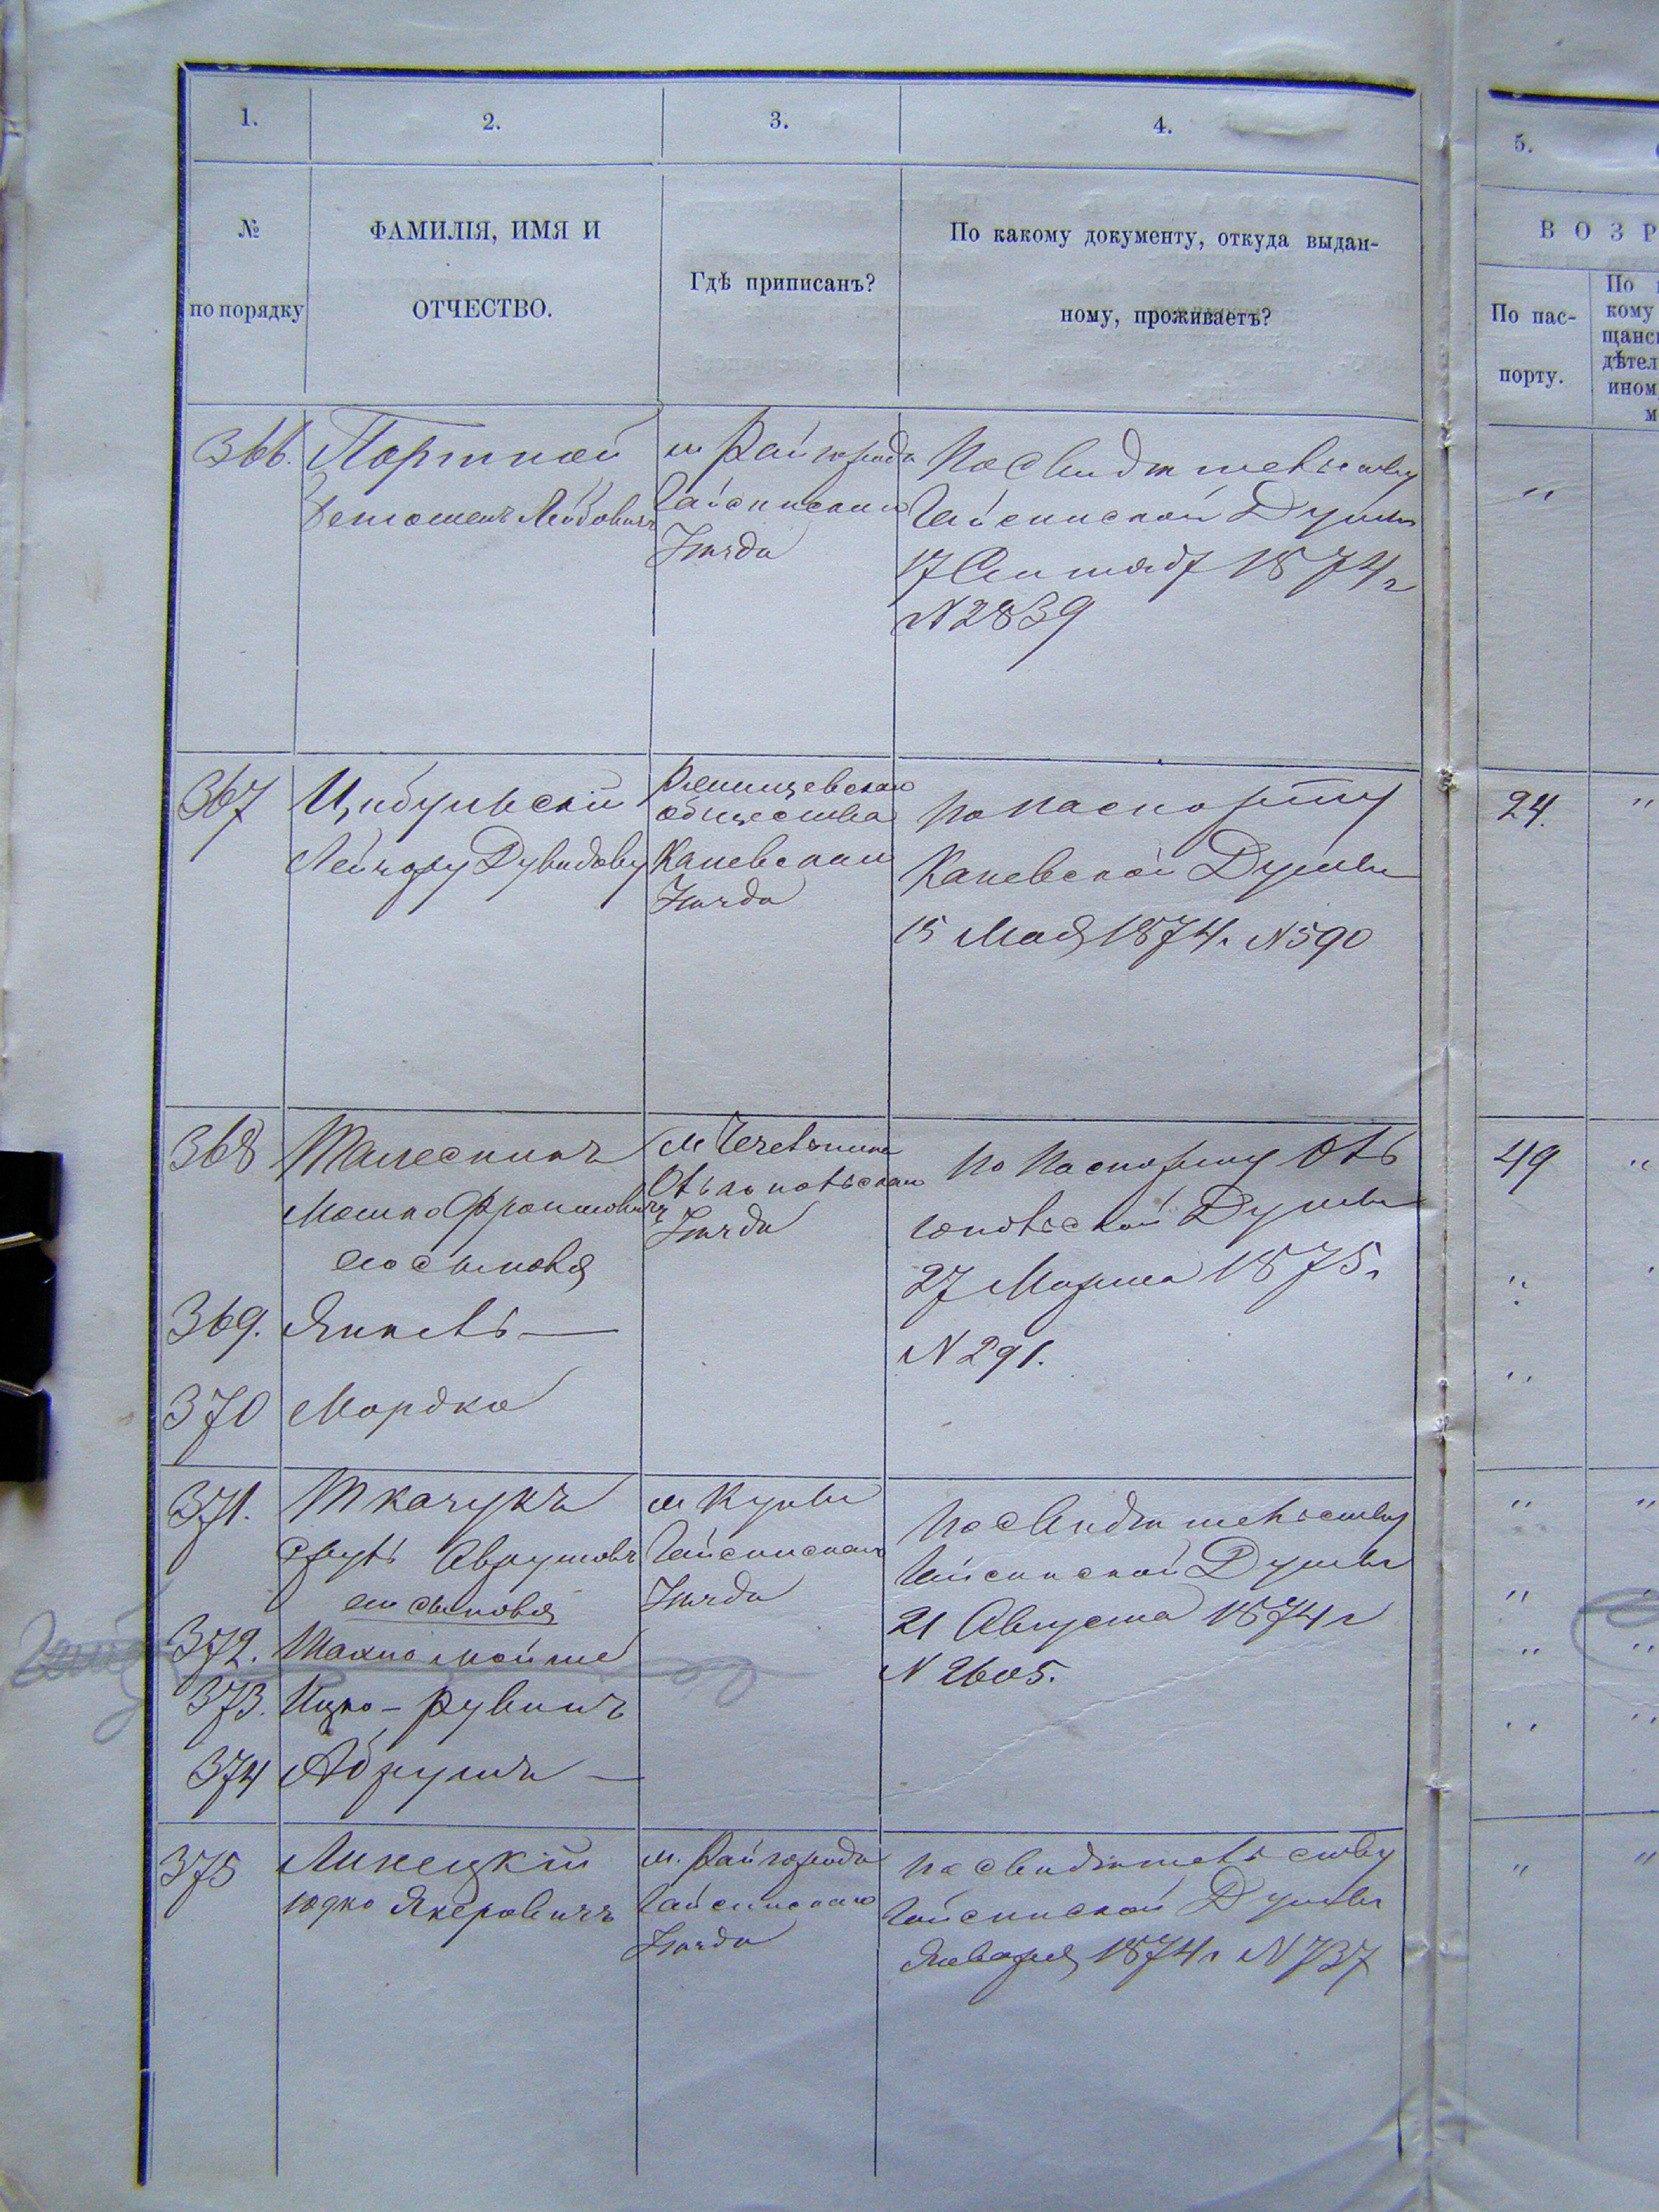 1.
2.
3.
4.
5.
№
по порядку
ФАМИЛІЯ, ИМЯ И
ОТЧЕСТВО.
Гдѣ приписанъ?
По какому документу, откуда выдан-
ному, проживаетъ?
ВОЗР
По пас-
порту.
По
кому
щанс
дѣтел
ином
м
366.
Портной
Лейбовичъ
м Райгорода
Гайсинскаго
Уѣзда
По свидѣтельству
Гайсинской Думы
17 Сентябр 1874 г
N 2839
"
367
Цибульскій
Дувидовъ
общества
Каневскаго
Уѣзда
По паспорту
Каневской Думы
15 Мая 1874 г. N 590
24.
"
368
Мошко
его сыновья
м Чечельника
Ольгопольскаго
Уѣзда
По паспорту Оль
гопольской Думы
27 Марта 1875 г
N 291.
49
"
369.
Янкель —
"
370
Мордко
"
371.
Ткачукъ
Сруль Аврумовъ
его сыновья
м Куны
Гайсинскаго
Уѣзда
По свидѣтельству
Гайсинской Думы
21 Августа 1874 г
N 2605.
"
"
372.
Шахно Мойше
"
373.
Ицко - Рувинъ
"
374
Абрумъ —
"
375
Линецкій
Юдко Янкеровичъ
м. Райгорода
Гайсинскаго
Уѣзда
По свидѣтельству
Гайсинской Думы
Января 1874 г N 737
"
"